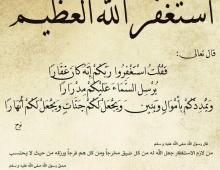 استغفر الله العظيم
قال تعالى:
فَقُلْتُ اسْتَغْفِرُوا رَبَّكُمْ إِنَّهُ كَانَ غَفَّارًا
يُرْسِلِ السَّمَاءَ عَلَيْكُمْ مِدْرَارًا
وَيُمْدِدْكُمْ بِأَمْوَالٍ وَبَنِينَ وَيَجْعَلْ لَكُمْ جَنَّاتٍ وَيَجْعَلْ لَكُمْ أَنْهَارًا
نوح
قال رسول الله صلى الله عليه وسلم
من لازم الاستغفار جعل الله له من كل ضيق مخرجاً ومن كل هم فرجاً ورزقه من حيث لا يحتسب
رسول الله صلى الله عليه وسلم